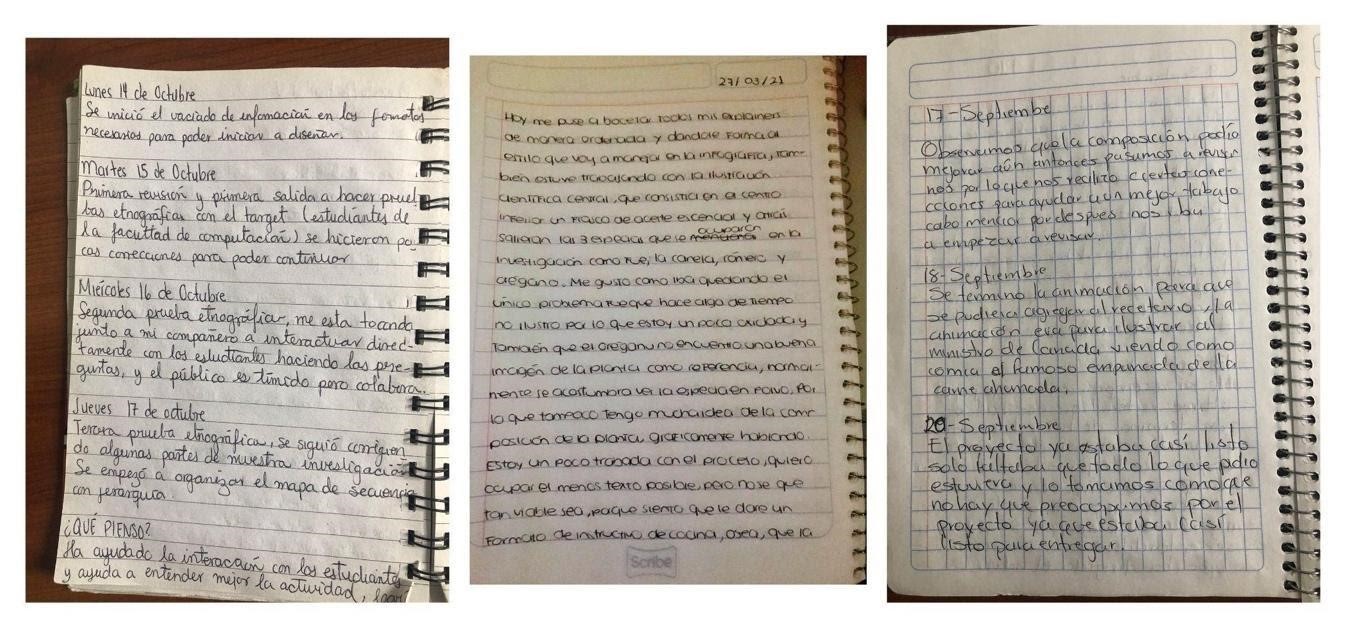 Lunes 14 de Octubre
Se inició el vaciado de infomación en los formatos
necesarios para poder iniciar a diseñar.
Martes 15 de Octubre
Primera revisión y primera salida a hacer prue
bas etnográficas con el target (estudiantes de
la facultad de computación) se hicieron po
cas correcciones para poder continuar
Miércoles 16 de Octubre
Segunda prueba etnográfica, me esta tocando
junto a mi compañero a interactuar direc-
tamente con los estudiantes haciendo las pre-
guntas, y el público es tímido pero colabora.
Jueves 17 de octubre
Tercera prueba etnográfica, se siguió corrigien
do algunas partes de nuestra investigación
Se empezó a organizar el mapa de secuencia
con jerarquía.
¿QUÉ PIENSO?
Ha ayudado la interacción con los estudiantes
y ayuda a entender mejor la actividad,
27/03/21
Hoy me puse a bocetar todos mis explainers
de manera ordenada y dandole forma al
estilo que voy a manejar en la infografía, tam-
bien estuve trabajando con la ilustración
científica central, que consistía en el centro
inferior un frasco de aceite escencial y ahí
salieran las 3 especias que se ocuparon en la
investigación como fue, la canela, romero y
orégano. Me gusto como iba quedando el
único problema fue que hace algo de tiempo
no ilustro por lo que estoy un poco oxidada y
también que el orégano no encuentro una buena
imagen de la planta como referencia, normal-
mente se acostumbra ver la especia en polvo. Por
lo que tampoco tengo mucha idea de la com
posición de la planta graficamente hablando.
Estoy un poco trabada con el proceso, quiero
ocupar el menos texto posible, pero no se que
tan viable sea, porque siento que le dare un
formato de instructivo de cocina, osea, que la
Scribe
17-Septiembe
Observamos que la composición podío
mejorar aún antonces pasamos a revisir
nos por lo que nos realizo ciertas corre-
cciones para ayudar a un mejor trabajo
cabo mencior por despues nos iba
a empezar a revisar.
18-Septiembre
Se termino la animación para que
se pudiera agregar al recetario, la
animación era para ilustrar al
ministro de Canada viendo como
comia el famoso empanada de la
carne ahumada.
20-Septiembre
El proyecto ya estaba casí listo
solo faltaba que todo lo que pidio
estuviera y lo tomamos como que
no hay que preocuparnos por el
proyecto ya que estaba casí
listo para entregar.